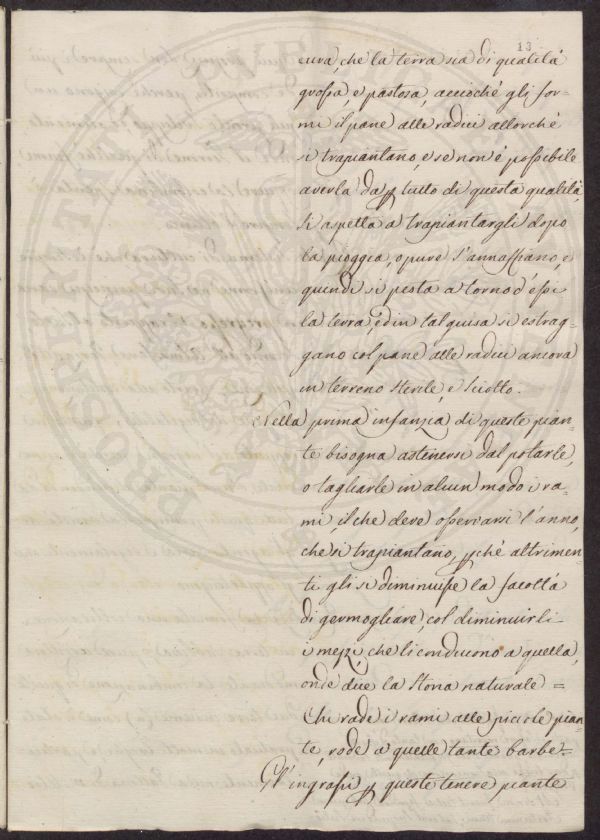 13
cura, che la terra sia di qualità
grossa, e pastosa, acciochè gli for-
mi il pane alle radici allorchè
si trapiantano, e se non è possibile
averla da p tutto di questa qualità,
si aspetta a trapiantargli dopo
la pioggia, opure s'annaffiano, e
quindi si pesta a torno d'essi
la terra, ed in tal guisa si estrag-
gano col pane alle radici ancora
in terreno sterile, e sciolto.
Nella prima infanzia di queste pian-
te bisogna astenersi dal potarle,
o tagliarle in alcun modo i ra-
mi, il che deve osservarsi l'anno,
che si trapiantano, pchè altrimen-
ti gli si diminuisse la facoltà
di germogliare, col diminuirli
i mezzi che li conducono a quella,
onde due la Stona naturale =
Chi rade i rami alle picciole pian-
te, rode a quelle tante barbe =
Gl'ingrassi p queste tenere piante
PROSPERITATI PVBLICAE